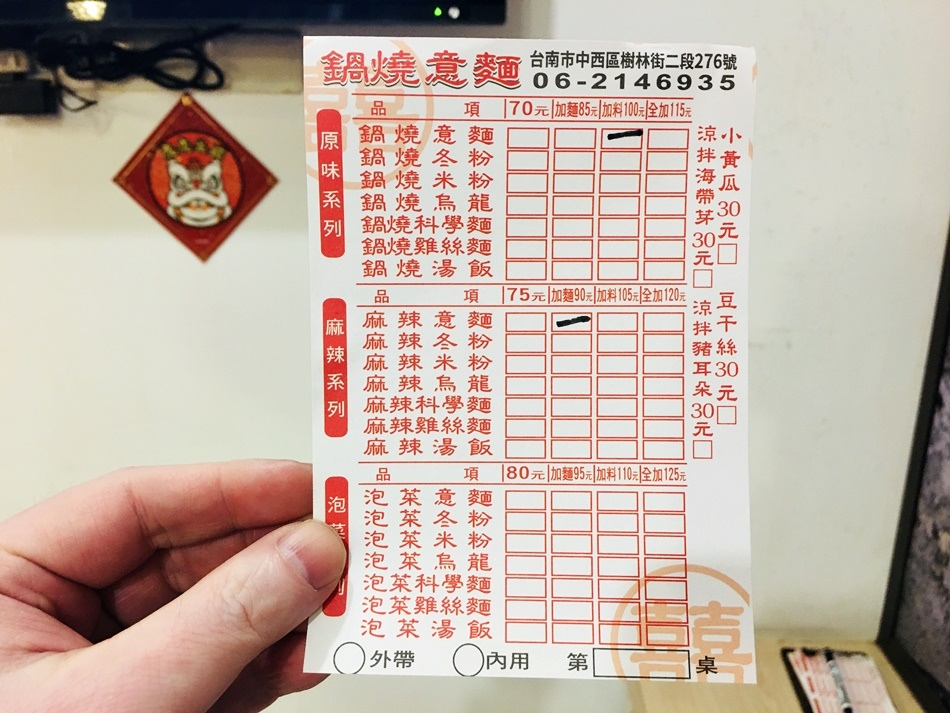 鍋燒意麵
台南市中西區樹林街二段276號
06-2146935
原味系列
品 項 70元 加麵85元 加料100元 全加115元
鍋燒意麵
鍋燒冬粉
鍋燒米粉
鍋燒烏龍
鍋燒科學麵
鍋燒雞絲麵
鍋燒湯飯
麻辣系列
品 項 75元 加麵90元 加料105元 全加120元
麻辣意麵
麻辣冬粉
麻辣米粉
麻辣烏龍
麻辣科學麵
麻辣雞絲麵
麻辣湯飯
泡菜 列
品 項 80元 加麵95元 加料110元 全加125元
泡菜意麵
泡菜冬粉
泡菜米粉
泡菜烏龍
泡菜科學麵
泡菜雞絲麵
泡菜湯飯
小黃瓜30元
涼拌海帶芽30元
豆干絲30元
涼拌豬耳朵30元
外帶 內用 第 桌
囍
囍